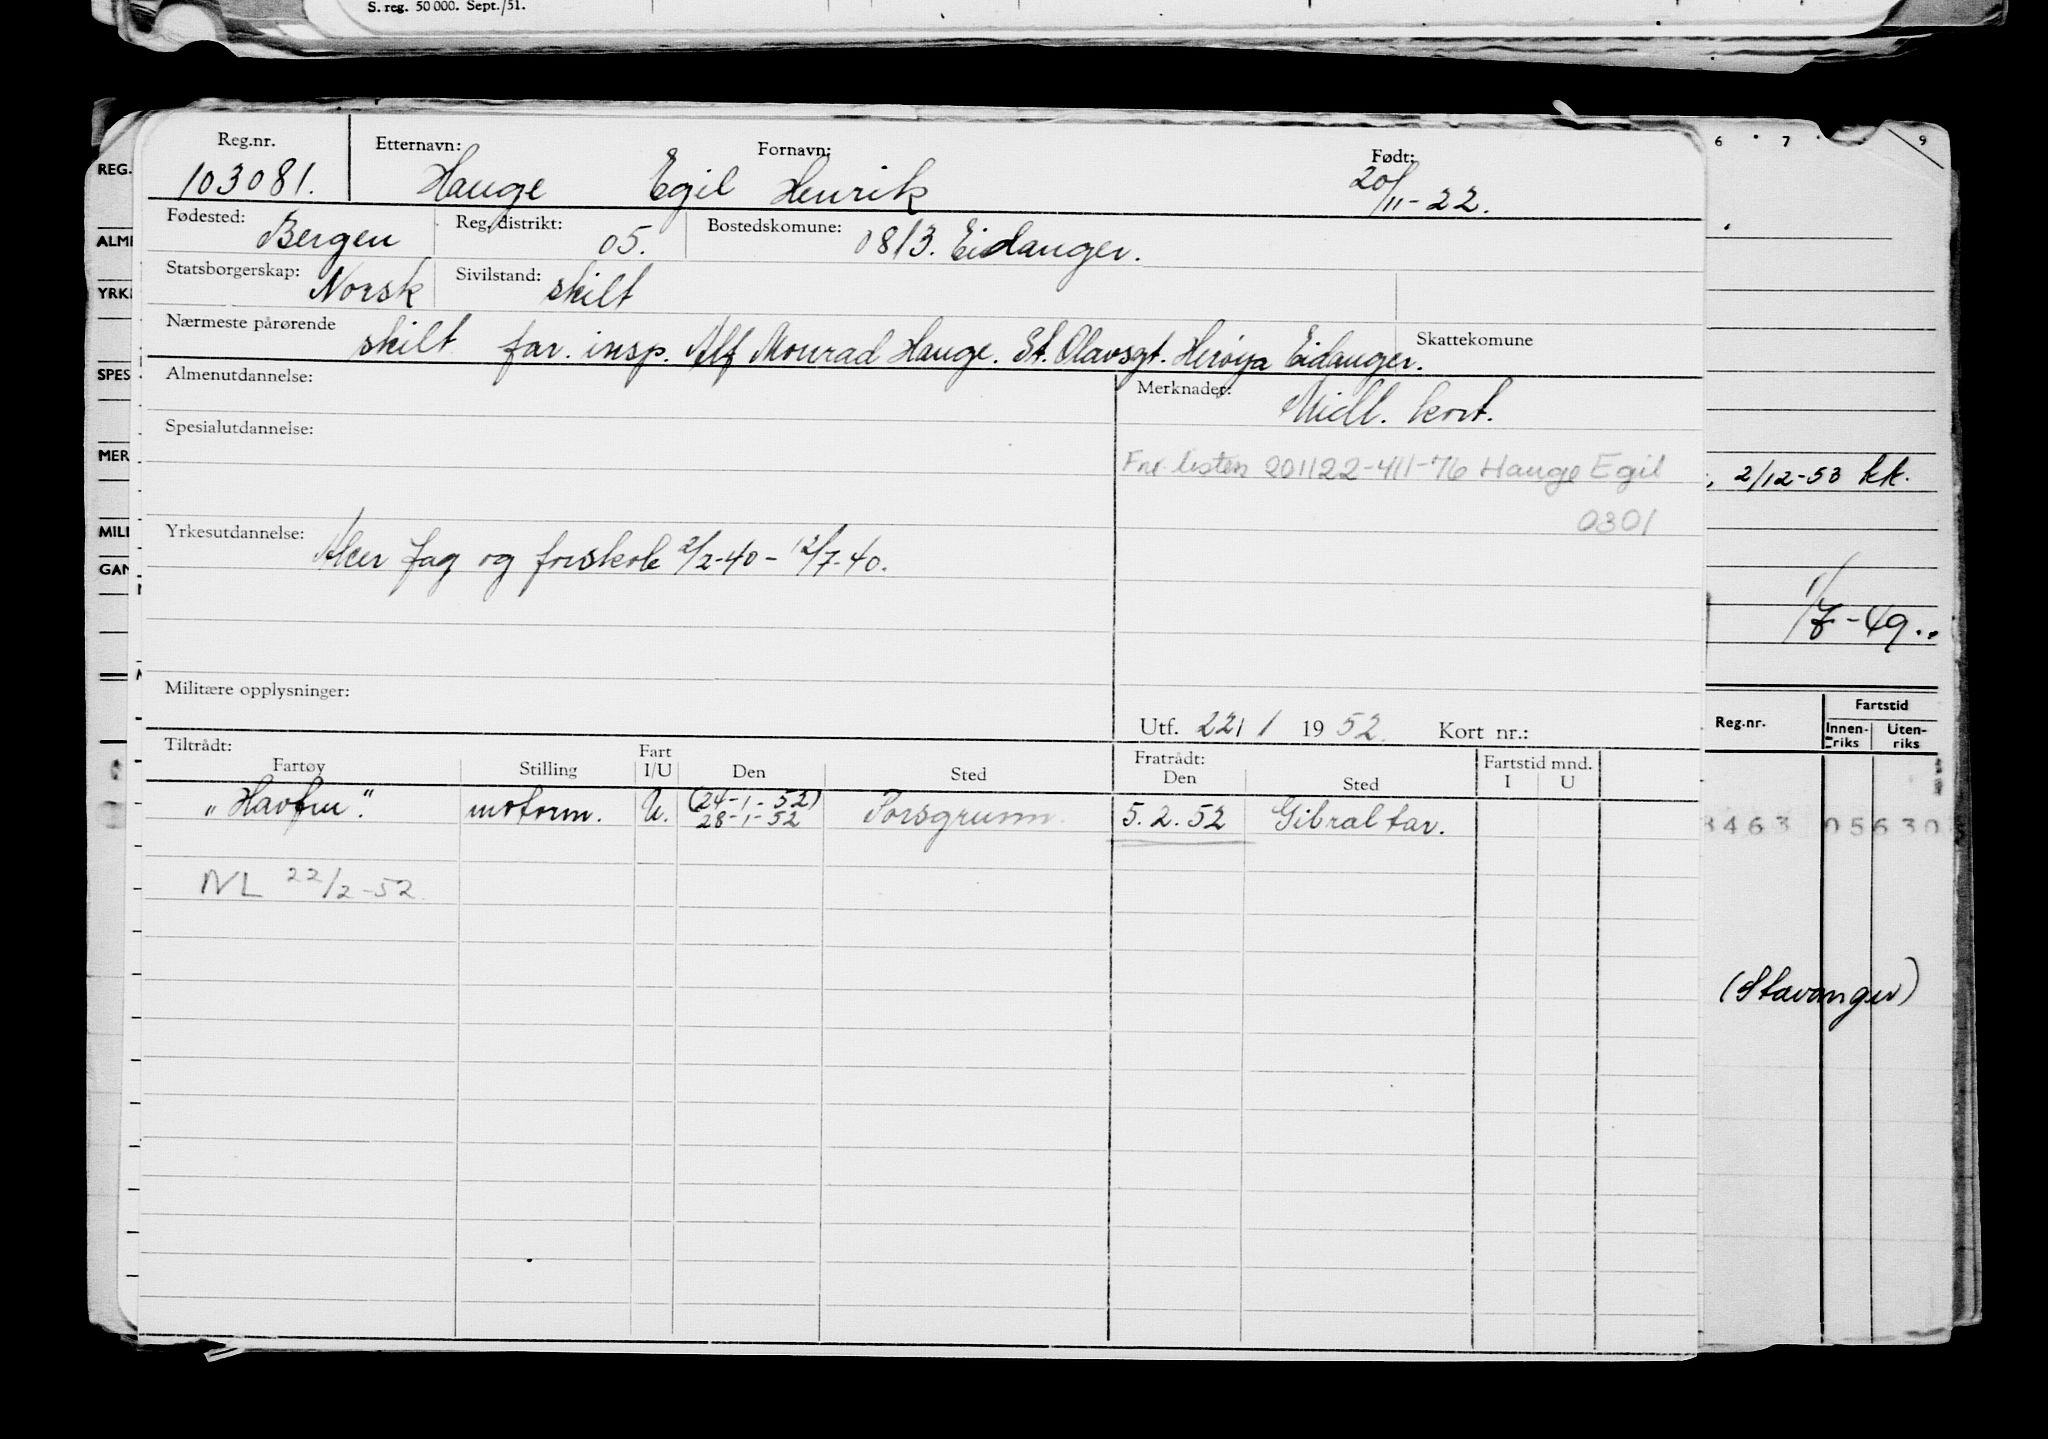 S. reg. 50 000. Sept./51.
Reg.nr. Etternavn: Fornavn: Født:
103081. Hauge Egil Henrik 20/11-22.
Fødested: Bergen Reg. distrikt: 05. Bostedskomune: 0813. Eidanger.
Statsborgerskap: Norsk Sivilstand: skilt
Nærmeste pårørende skilt far. insp. Alf Monrad Hauge. St. Olavsgt. Herøya Eidanger. Skattekomune
Almenutdannelse: Merknader: Midl. kort.
Spesialutdannelse:
Fnr listen 201122-411-76 Hauge Egil
0301
Yrkesutdannelse: fag og forskole 2/2-40 – 12/7-40.
Militære opplysninger:
Utf. 22/1 1952. Kort nr.:
Tiltrådt: Fart Fratrådt: Fartstid mnd.
Fartøy Stilling I/U Den Sted Den Sted I U
(24-1-52)
"Havfru". motorm. U. 28-1-52 Porsgrunn. 5.2.52 Gibraltar.
NL 22/2-52.
REG.
ALM
YRK
SPES
MER
MILI
GAN
6 7 9
2/12-53 kk.
1/7-49..
Reg.nr. Fartstid
Innen-riks Uten-riks
3463 05630
(Stavanger)